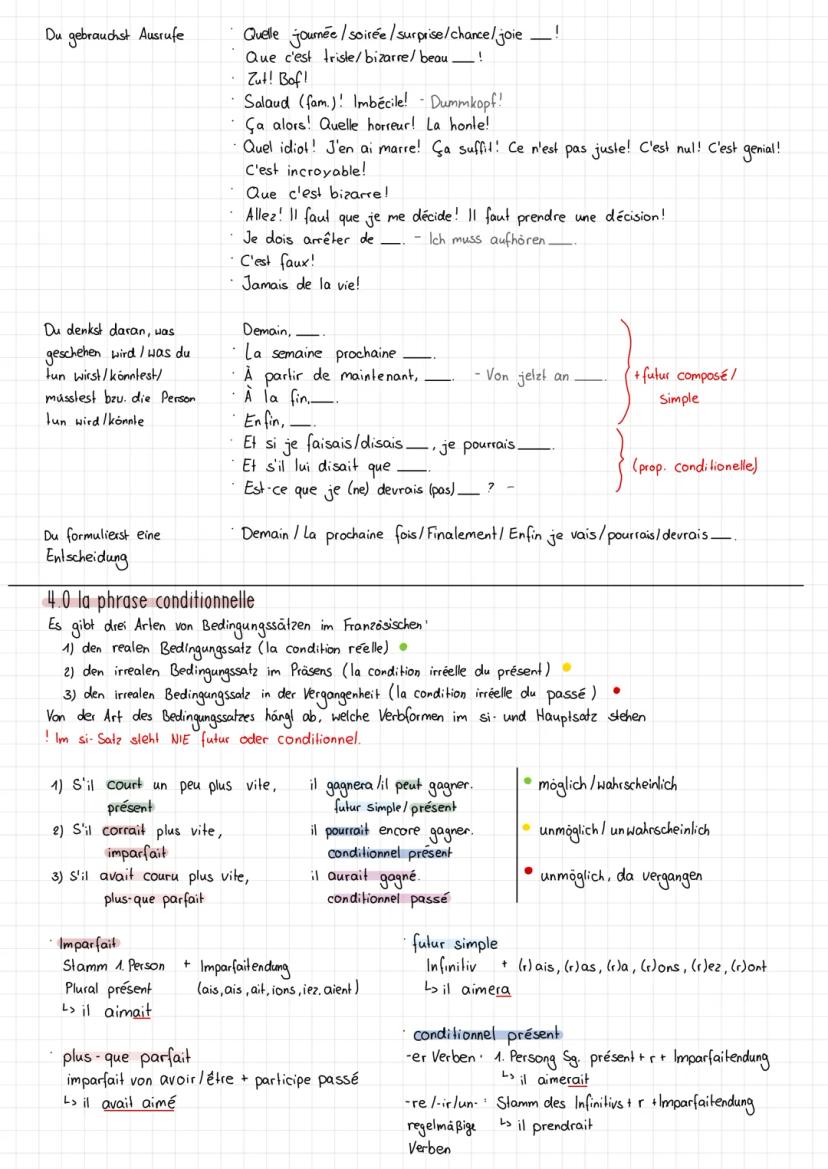 Du gebrauchst Ausrufe
· Quelle journée/soirée/surprise/chance/joie ___!
Que c'est triste/bizarre/beau ___!
· Zut! Bof!
· Salaud (fam.)! Imbécile! - Dummkopf!
· Ça alors! Quelle horreur! La honte!
· Quel idiot! J'en ai marre! Ça suffit! Ce n'est pas juste! C'est nul! C'est genial!
C'est incroyable!
· Que c'est bizarre!
· Allez! Il faut que je me décide! Il faut prendre une décision!
· Je dois arrêter de ___. - Ich muss aufhören ___.
· C'est faux!
· Jamais de la vie!
Du denkst daran, was
geschehen wird/was du
tun wirst/könntest/
müsstest bzw. die Person
tun wird/könnte
Demain, ___.
· La semaine prochaine ___.
· À partir de maintenant, ___. - Von jetzt an ___.
· À la fin, ___.
· Enfin, ___.
+futur composé/
simple
· Et si je faisais/disais ___, je pourrais ___.
· Et s'il lui disait que ___.
· Est-ce que je (ne) devrais (pas) ___? -
(prop. conditionelle)
Du formulierst eine
Entscheidung
· Demain / La prochaine fois/Finalement/Enfin je vais/pourrais/devrais ___.
4.0 la phrase conditionnelle
Es gibt drei Arten von Bedingungssätzen im Französischen:
1) den realen Bedingungssatz (la condition réelle)
2) den irrealen Bedingungssatz im Präsens (la condition irréelle du présent)
3) den irrealen Bedingungssatz in der Vergangenheit (la condition irréelle du passé)
Von der Art des Bedingungssatzes hängt ab, welche Verbformen im si- und Hauptsatz stehen
! Im si-Satz steht NIE futur oder conditionnel.
1) S'il court un peu plus vite, il gagnera/il peut gagner. · möglich/wahrscheinlich
présent futur simple/présent
2) S'il corrait plus vite, il pourrait encore gagner. · unmöglich/unwahrscheinlich
imparfait conditionnel présent
3) S'il avait couru plus vite, il aurait gagné. · unmöglich, da vergangen
plus-que parfait conditionnel passé
· Imparfait
Stamm 1. Person + Imparfaitendung
Plural présent (ais, ais, ait, ions, iez, aient)
↳ il aimait
· plus-que parfait
imparfait von avoir/être + participe passé
↳ il avait aimé
· futur simple
Infinitiv + (r)ais, (r)as, (r)a, (r)ons, (r)ez, (r)ont
↳ il aimera
· conditionnel présent
-er Verben: 1. Persong Sg. présent + r + Imparfaitendung
↳ il aimerait
-re/-ir/un-: Stamm des Infinitivs + r + Imparfaitendung
regelmäßige ↳ il prendrait
Verben